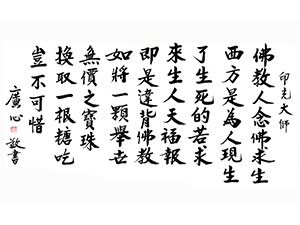 印光大師
佛教人念佛求生
西方是為人現生
了生死的若求
來生人天福報
即是違背佛教
如將一顆舉世
無價之寶珠
換取一根糖吃
豈不可惜
廣心敬書